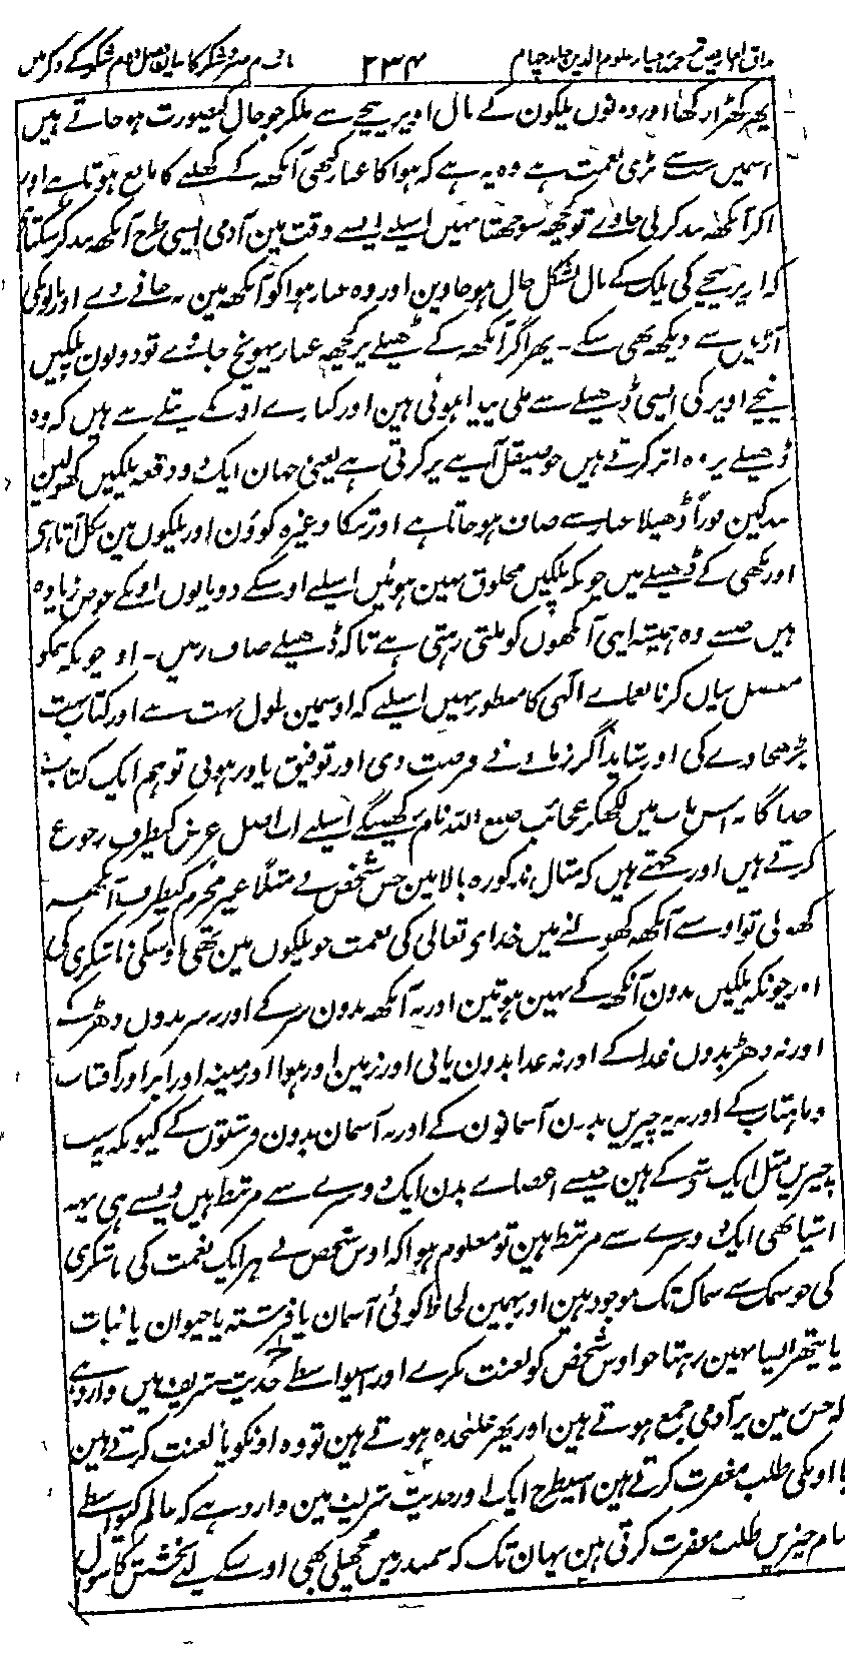 مذاق العارفین ترجمہ احیاء علوم الدین جلد چہارم ۲۳۴ باب دوم صبر و شکر کا بیان فصل دوم شکر کے ذکر میں
پھر کھڑا رکھا اور وہ نوں پلکون کے بال اوپر نیچے سے ملکر جو جال کیصورت ہو جاتے ہیں
اسمیں سب سے بڑی نعمت ہے وہ یہ ہے کہ ہوا کا غبار کبھی آنکھہ کے کھلنے کا مانع ہوتا ہے اور
اگر آنکھہ بند کر لی جاوے تو کچھہ سوجھتا نہیں اسلیے ایسے وقت مین آدمی ایسی طرح آنکھہ بند کر سکتا ہے
کہ اوپر نیچے کی پلک کے بال بشکل جال ہو جاوین اور وہ غبار ہوا کو آنکھہ مین نہ جانے دے اور بالونکی
آڑ میں سے دیکھہ بھی سکے ۔ پھر اگر آنکھہ کے ڈھیلے پر کچھہ غبار پہونچ جاوے تو دونون پلکیں
نیچے اوپر کی ایسی ڈھیلے سے ملی پیدا ہوئی ہین اور کنارے اونکے پتلے سے ہیں کہ وہ
ڈھیلے پر وہ اثر کرتے ہیں جو صیقل آیینے پر کرتی ہے یعنی جہان ایک دو دفعہ پلکیں کھولین
بند کین فوراً ڈھیلا غبار سے صاف ہو جاتا ہے اور تنکا وغیرہ کوؤن اور پلکوں مین نکل آتا ہی
اور مکھی کے ڈھیلے میں چونکہ پلکیں مخلوق نہین ہوئیں اسلیے اوسکے دو پانوں اونکے عوض زیادہ
ہیں جنسے وہ ہمیشہ اپنی آنکھوں کو ملتی رہتی ہے تاکہ ڈھیلے صاف رہیں ۔ او چونکہ ہمکو
مفصل بیان کرنا نعماے الٰہی کا منظور نہیں اسلیے کہ اوسمین طول بہت ہے اور کتاب بہت
بڑھجاوے گی او بشاید اگر زمانہ نے فرصت دی اور توفیق یاور ہوئی تو ہم ایک کتاب
جداگانہ اس باب میں لکھکر عجائب صنع اللہ نام رکھینگے اسلیے اب اصل غرض کیطرف رجوع
کرتے ہیں اور کہتے ہیں کہ مثال مذکورہ بالا مین جس شخص نے مثلاً غیر محرم کیطرف آنکھہ
کھولی تو اوسنے آنکھہ کھولنے میں خداے تعالی کی نعمت جو پلکوں مین تھی اوسکی ناشکری کی
اور چونکہ پلکیں بدون آنکھ کے نہین ہوتین اور نہ آنکھہ بدون سر کے اور نہ سر بدوں دھڑ کے
اور نہ دھڑ بدوں غذا کے اور نہ غذا بدون پانی اور زمین اور ہوا اور مینہ اور ابر اور آفتاب
و ماہتاب کے اور نہ یہ چیزیں بدون آسمانون کے اور نہ آسمان بدون فرشتوں کے کیونکہ یہ سب
چیزیں مثل ایک شے کے ہین جیسے اعضاے بدن ایک دوسرے سے مرتبط ہیں ویسے ہی یہہ
اشیا بھی ایک دوسرے سے مرتبط ہین تو معلوم ہوا کہ اوس شخص نے ہر ایک نعمت کی ناشکری
کی جو سمک سے سماک تک موجود ہین او بہین لحاظ کوئی آسمان یا فرشتہ یا حیوان یا نبات
یا پتھر ایسا نہین رہتا جو اوس شخص کو لعنت نکرے اور اسیواسطے حدیث شریف میں وارد ہے
کہ جس زمین پر آدمی جمع ہوتے ہین اور پھر علٰحدہ ہوتے ہین تو وہ اونکو یا لعنت کرتے ہین
یا اونکی طلب مغفرت کرتے ہین اسیطرح ایک اور حدیث شریف مین وارد ہے کہ عالم کیواسطے
تمام چیزیں طلب مغفرت کرتی ہین یہان تک کہ سمندر میں مچھلی بھی اوسکے لیے بخشش کا سوال